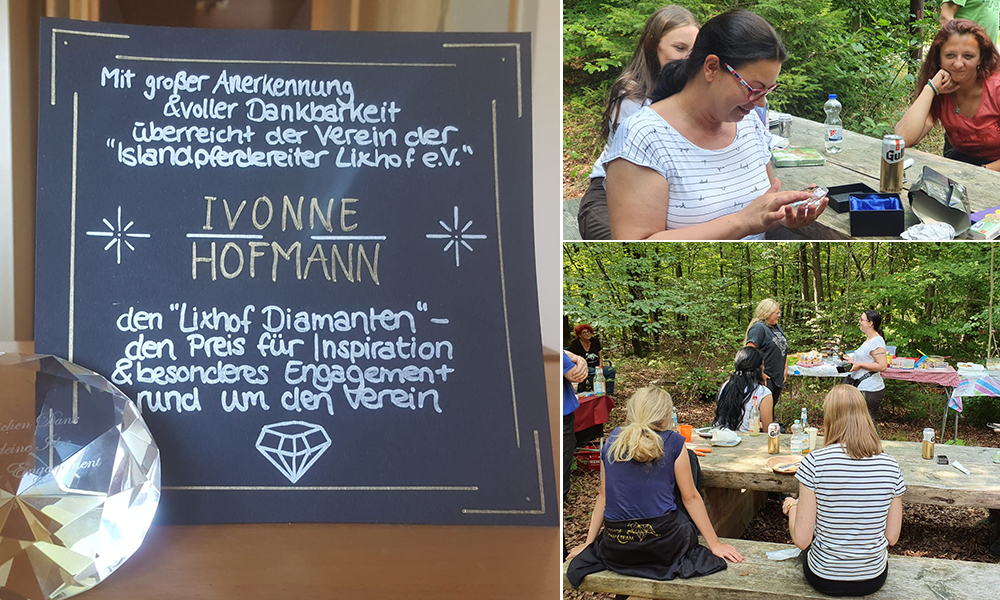 Mit großer Anerkennung
& voller Dankbarkeit
überreicht der Verein der
"Islandpferdereiter Lixhof e.V."
IVONNE
HOFMANN
den "Lixhof Diamanten" -
den Preis für Inspiration
& besonderes Engagement
rund um den Verein
Engagement
Gu